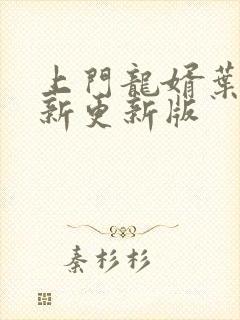 上門龍婿葉
新更新版
秦杉杉